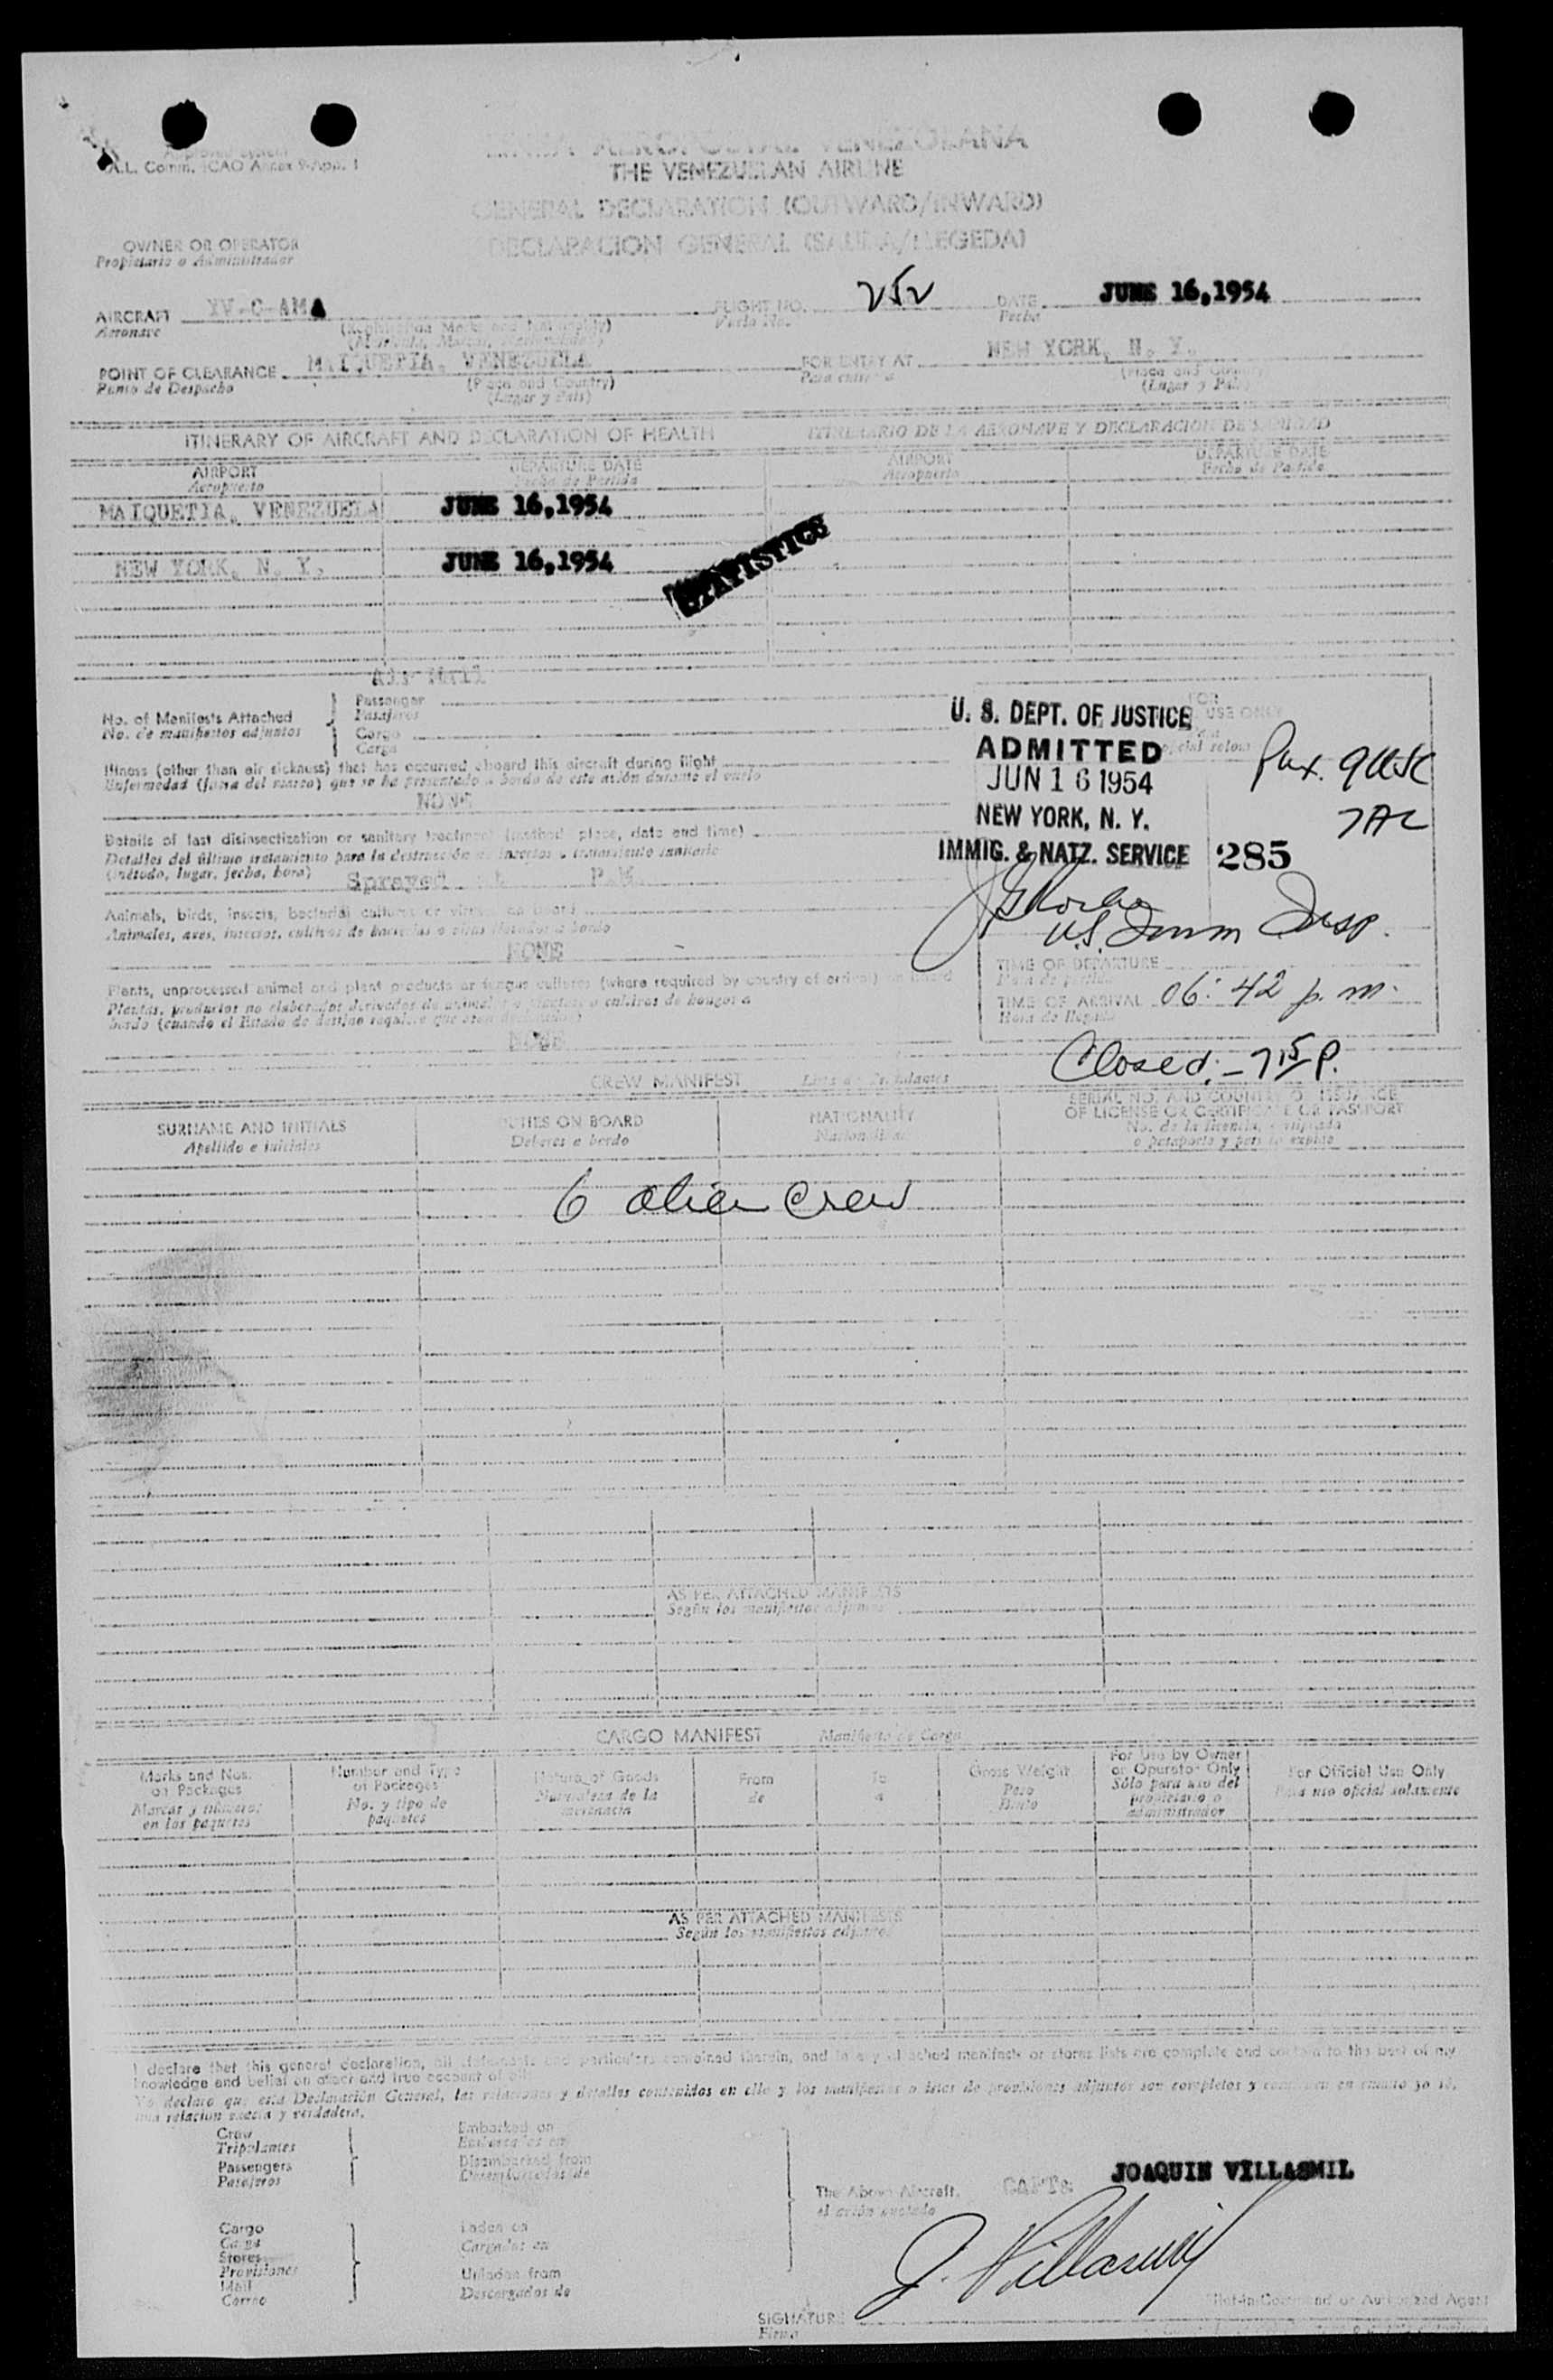 A.L. Comm. ICAO Annex 9-App. 1
LINEA AEROPOSTAL VENEZOLANA
THE VENEZUELAN AIRLINE
GENERAL DECLARATION (OUTWARD/INWARD)
DECLARACION GENERAL (SALIDA/LLEGEDA)
OWNER OR OPERATOR
Propietario o Administrador
AIRCRAFT YV-C-AMA FLIGHT NO. 252 DATE JUNE 16,1954
Aeronave Vuelo No. Fecha
POINT OF CLEARANCE MAIQUETIA, VENEZUELA FOR ENTRY AT NEW YORK, N. Y.
Punto de Despacho (Place and Country) (Place and Country)
(Lugar y Pais) (Lugar y Pais)
ITINERARY OF AIRCRAFT AND DECLARATION OF HEALTH ITINERARIO DE LA AERONAVE Y DECLARACION DE SANIDAD
AIRPORT DEPARTURE DATE AIRPORT DEPARTURE DATE
Aeropuerto Fecha de Partida Aeropuerto Fecha de Partida
MAIQUETIA, VENEZUELA JUNE 16,1954
STATISTICS
NEW YORK, N. Y. JUNE 16,1954
Air Mail
No. of Manifests Attached Passenger
No. de manifiestos adjuntos Pasajeros
Cargo
Carga
U. S. DEPT. OF JUSTICE
ADMITTED
JUN 16 1954
NEW YORK, N. Y.
IMMIG. & NATZ. SERVICE 285
Pax. 9 USC
7 AL
Illness (other than air sickness) that has occurred aboard this aircraft during flight
Enfermedad (fuera del mareo) que se ha presentado a bordo de este avión durante el vuelo
NONE
Details of last disinsectization or sanitary treatment (method, place, date and time)
Detalles del último tratamiento para la destrucción de insectos o tratamiento sanitario
(método, lugar, fecha, hora) Sprayed P.M.
U.S. Imm Insp.
Animals, birds, insects, bacterial cultures or virus on board
NONE
Plants, unprocessed animal and plant products or fungus cultures (where required by country of arrival) on board
bordo (cuando el Estado de destino requiere que sean declarados)
NONE
TIME OF DEPARTURE
Hora de partida
TIME OF ARRIVAL 06:42 p.m.
Hora de llegada
Closed - 715 P.
CREW MANIFEST Lista de Tripulantes
SURNAME AND INITIALS DUTIES ON BOARD NATIONALITY SERIAL NO. AND COUNTRY OF ISSUANCE
OF LICENSE OR CERTIFICATE OR PASSPORT
Apellido e iniciales Deberes a bordo Nacionalidad
6 alien crew
AS PER ATTACHED MANIFESTS
Según los manifiestos adjuntos
CARGO MANIFEST Manifiesto de Carga
Marks and Nos. on Packages
Marcas y números en los paquetes
Number and Type of Packages
No. y tipo de paquetes
Nature of Goods
Naturaleza de la mercancia
From
de
To
a
Gross Weight
Peso Bruto
For Use by Owner or Operator Only
Sólo para uso del propietario o administrador
For Official Use Only
Para uso oficial solamente
AS PER ATTACHED MANIFESTS
Según los manifiestos adjuntos
I declare that this general declaration, all statements and particulars contained therein, and in any attached manifests or stores lists are complete and contain to the best of my
knowledge and belief an exact and true account of all
una relación exacta y verdadera.
Crew
Tripulantes
Passengers
Pasajeros
Embarked on
Embarcados en
Disembarked from
Desembarcados de
Cargo
Carga
Stores
Provisiones
Mail
Correo
Laden on
Cargados en
Unladen from
Descargados de
The Above Aircraft.
el avión anotado
CAPT: JOAQUIN VILLASMIL
J. Villasmil
Pilot-in-Command or Authorized Agent
SIGNATURE
Firma